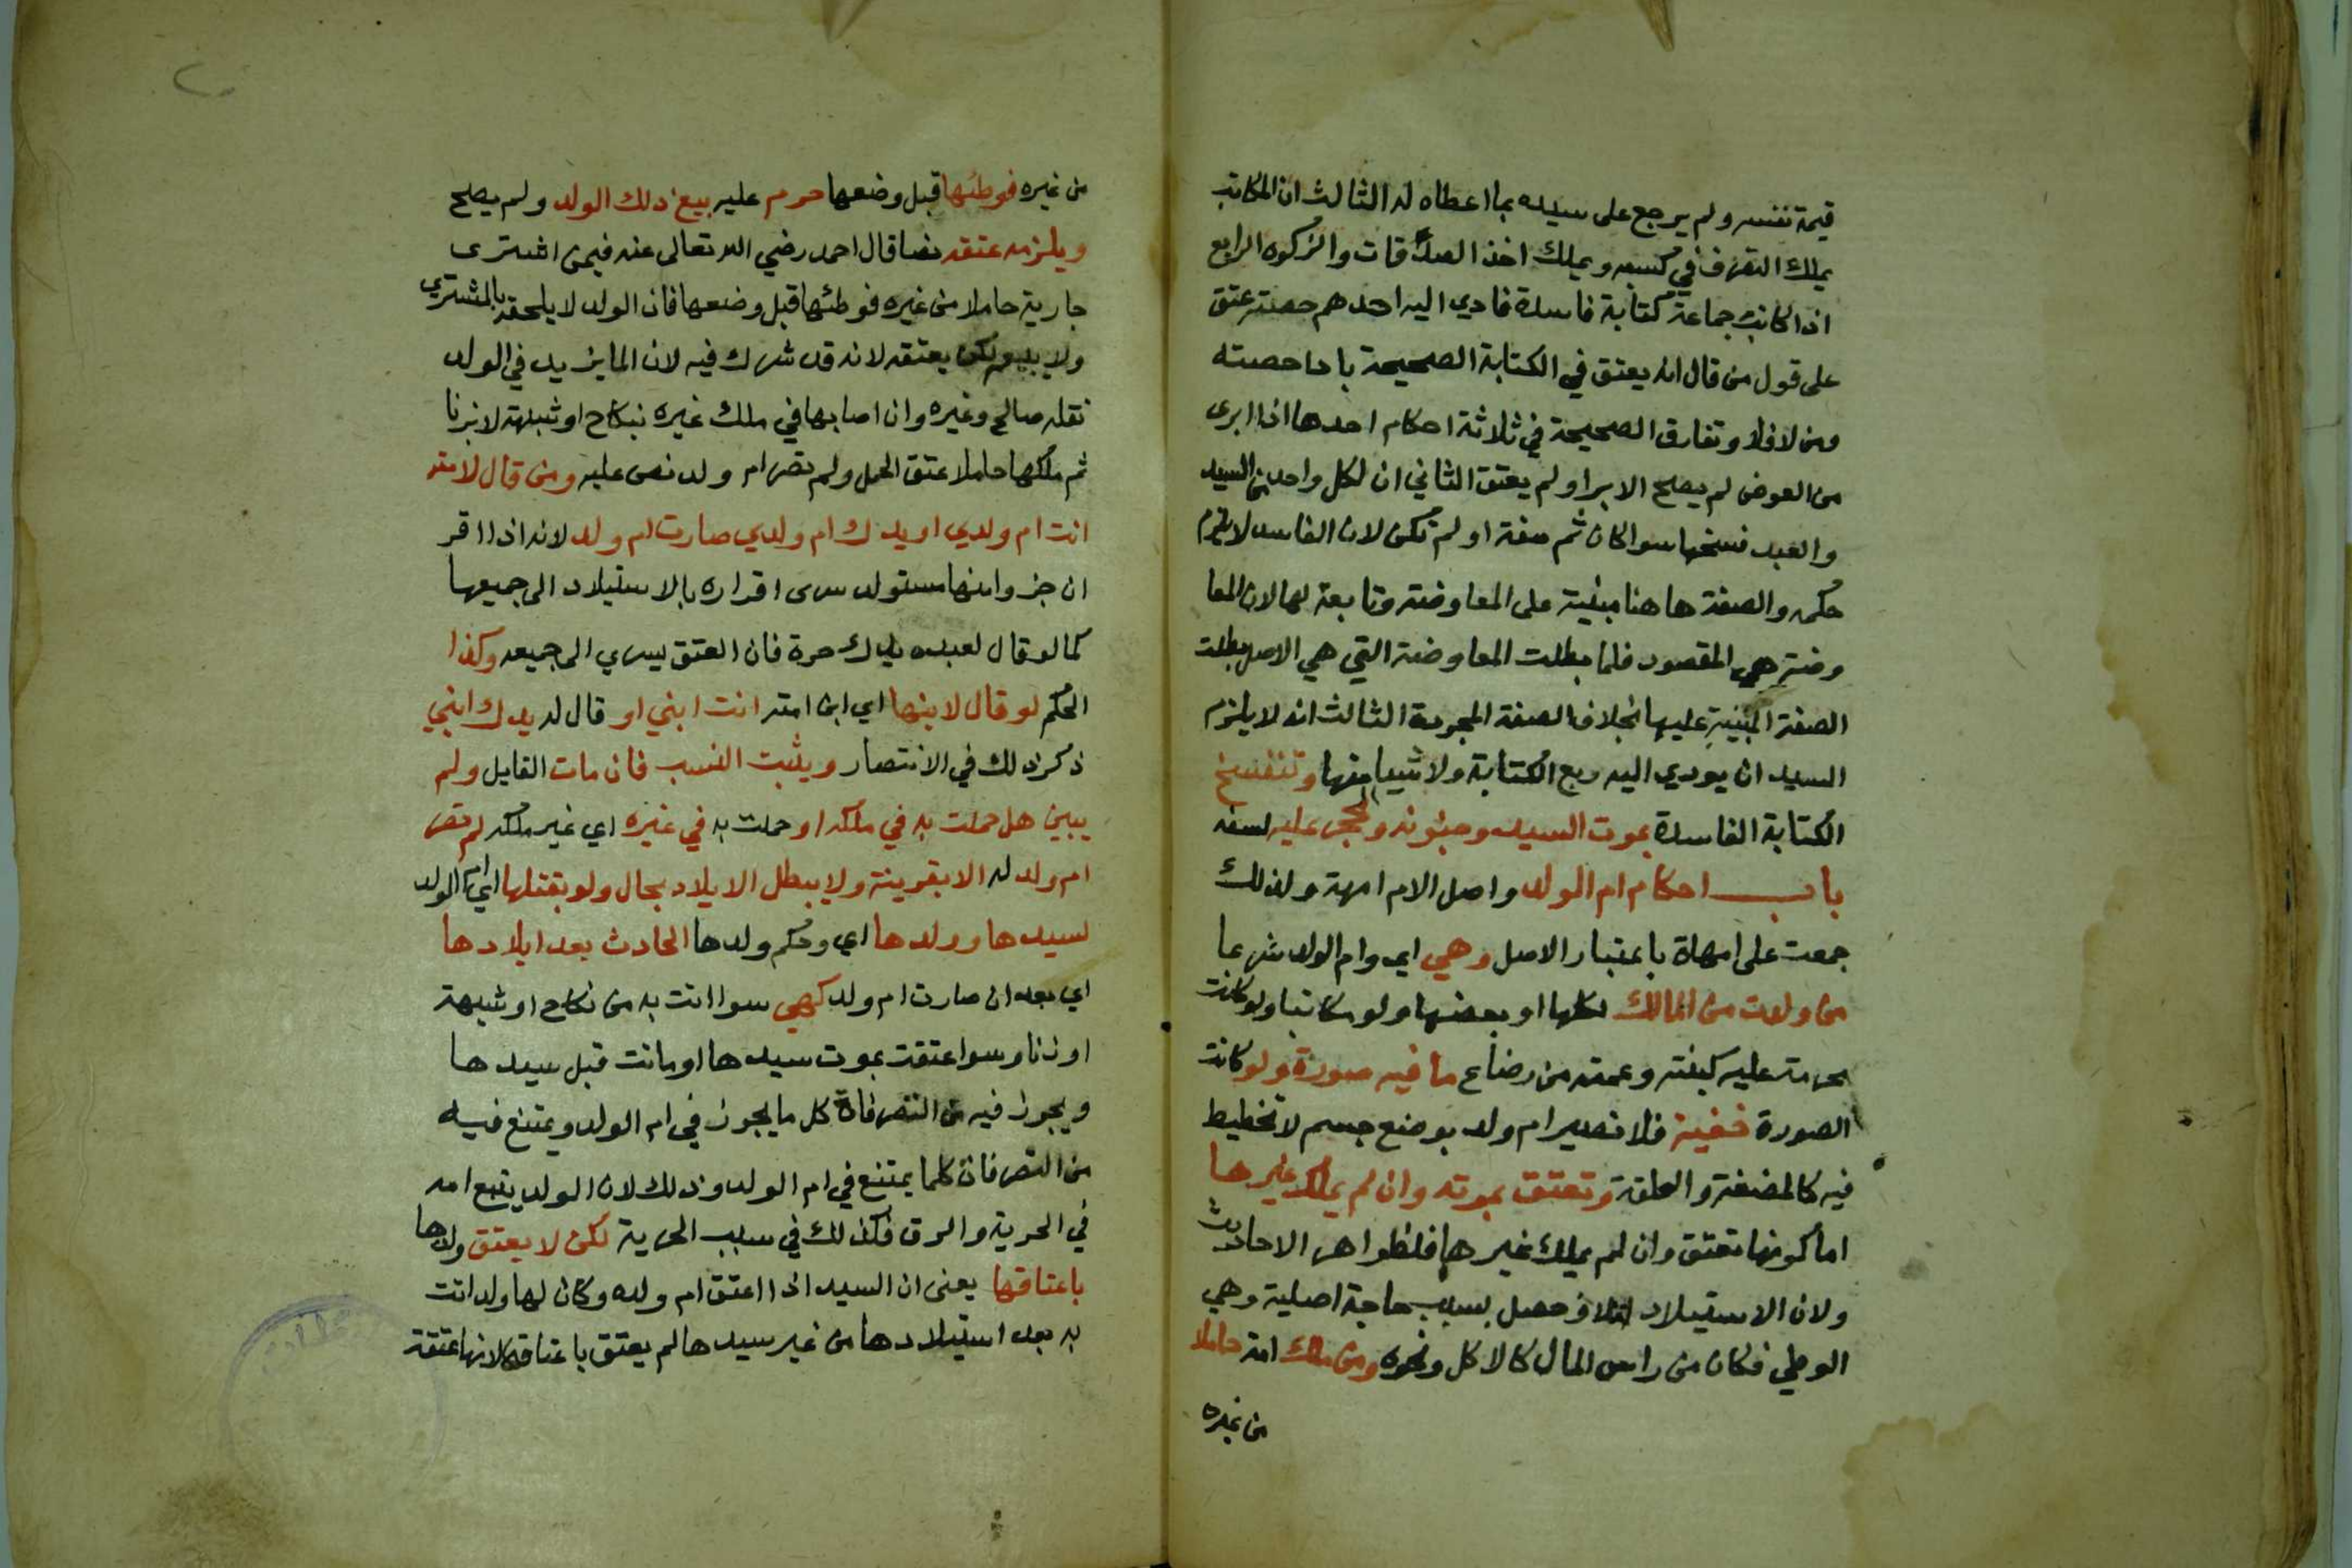 قيمة نفسه ولم يرجع على سيده بما اعطاه له الثالث ان المكاتب
يملك التصرف في كسبه ويملك اخذ الصدقات والزكوه الرابع
اذا كاتب جماعة كتابة فاسدة فادي اليه احدهم حصته عتق
على قول من قال انه يعتق في الكتابة الصحيحة بادا حصته
ومن لا فلا وتفارق الصحيحة في ثلاثة احكام احدها اذا ابرى
من العوض لم يصح الابرا ولم يعتق الثاني ان لكل واحد من السيد
والعبد فسخها سوا كان ثم صفة او لم تكن لان الفاسد لا يلزم
حكمه والصفة ها هنا مبنية على المعاوضة وتابعة لها لان المعا
وضة هي المقصود فلما بطلت المعاوضة التي هي الاصل بطلت
الصفة المبنية عليها بخلاف الصفة المجردة الثالث انه لا يلزم
السيد ان يودي اليه ربع الكتابة ولا شيا منها وتنفسخ
الكتابة الفاسدة بموت السيد وجنونه والحجر عليه لسفه
باب احكام ام الولد واصل الام امهة ولذلك
جمعت على امهاة باعتبار الاصل وهي اي وام الولد شرعا
من ولدت من المالك لكلها او بعضها ولو مكاتبا ولو كانت
محرمة عليه كبنته وعمته من رضاع ما فيه صورة ولو كانت
الصورة خفية فلا تصير ام ولد بوضع جسم لا تخطيط
فيه كالمضغة والعلقة وتعتق بموته وان لم يملك غيرها
اما كونها تعتق وان لم يملك غيرها فلظواهر الاحاديث
ولان الاستيلاد اتلاف حصل بسبب حاجة اصلية وهي
الوطي فكان من راس المال كالاكل ونحوه ومن ملك امة حاملا
من غيره
من غيره فوطئها قبل وضعها حرم عليه بيع ذلك الولد ولم يصح
ويلزمه عتقه نصا قال احمد رضي الله تعالى عنه فيمن اشترى
جارية حاملا من غيره فوطئها قبل وضعها فان الولد لا يلحقه بالمشتري
ولا يبيعه لكن يعتقه لانه قد شرك فيه لان الما يزيد في الولد
نقله صالح وغيره وان اصابها في ملك غيره بنكاح او شبهة لا بزنا
ثم ملكها حاملا عتق الحمل ولم تصر ام ولد نص عليه ومن قال لامته
انت ام ولدي او يدك ام ولدي صارت ام ولد لانه اذا اقر
ان جزوا منها مستولد سرى اقراره بالاستيلاد الى جميعها
كما لو قال لعبده يدك حرة فان العتق يسري الى جميعه وكذا
الحكم لو قال لابنها اي ابن امته انت ابني او قال له يدك ابني
ذكر ذلك في الانتصار ويثبت النسب فان مات القايل ولم
يبين هل حملت به في ملكه او حملت به في غيره اي غير ملكه لم تصر
ام ولد له الا بقرينة ولا يبطل الايلاد بحال ولو بقتلها اي ام الولد
لسيدها وولدها اي وحكم ولدها الحادث بعد ايلادها
اي بعد ان صارت ام ولد كهي سوا اتت به من نكاح او شبهة
او زنا وسوا عتقت بموت سيدها او ماتت قبل سيدها
ويجوز فيه من التصرفاة كل ما يجوز في ام الولد ويمتنع فيه
من التصرفات كلما يمتنع في ام الولد وذلك لان الولد يتبع امه
في الحرية والرق فكذلك في سبب الحرية لكن لا يعتق ولدها
باعتاقها يعنى ان السيد اذا اعتق ام ولده وكان لها ولد اتت
به بعد استيلادها من غير سيدها لم يعتق باعتاقها لانها عتقة